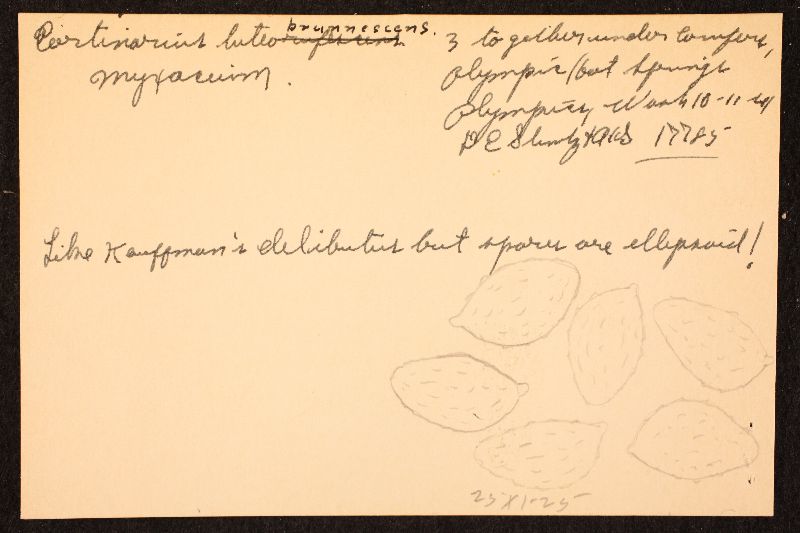 brunnescens.
Cortinarius luteo
Myxacium.
3 together under conifers,
Olympic Hot Springs
Olympics, Wash 10-11-41
D E Stuntz & AHS 17785
Like Kauffman's delibutus but spores are ellipsoid!
25 X 1-25